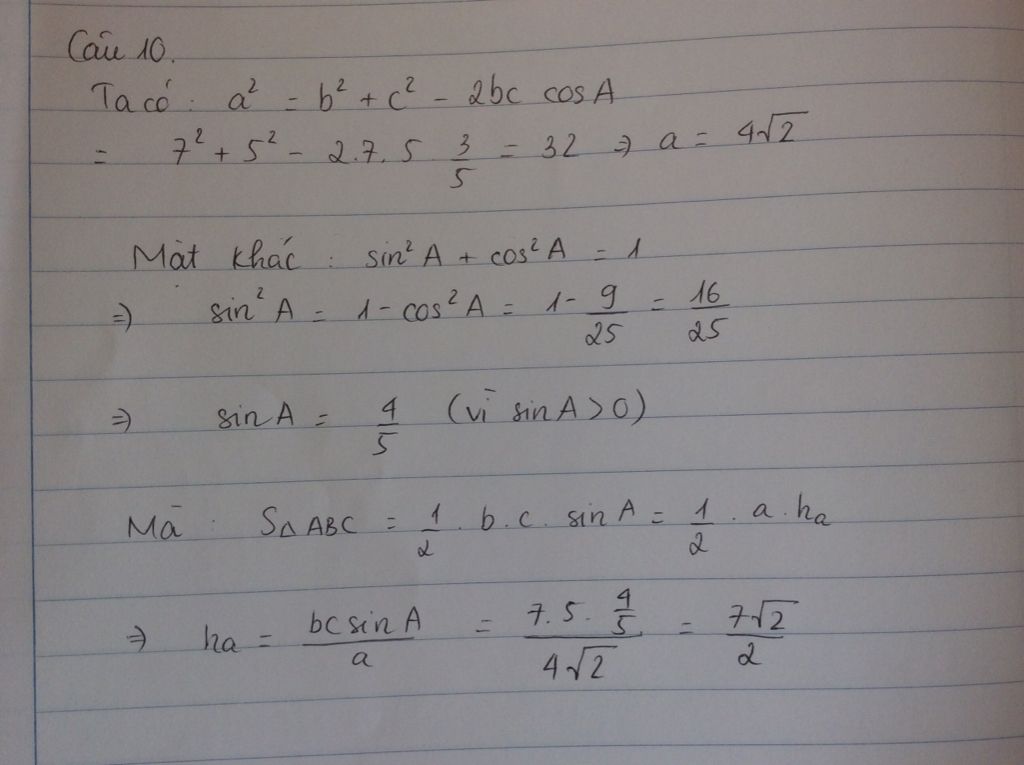 Câu 10.
Ta có : a² = b² + c² - 2bc cosA
= 7² + 5² - 2.7.5 . 3/5 = 32 => a = 4√2
Mặt khác : sin²A + cos²A = 1
=> sin²A = 1 - cos²A = 1 - 9/25 = 16/25
=> sinA = 4/5 (vì sinA > 0)
Mà : S△ABC = 1/2 . b . c . sinA = 1/2 . a . hₐ
=> hₐ = bc sinA / a = 7.5.4/5 / 4√2 = 7√2/2